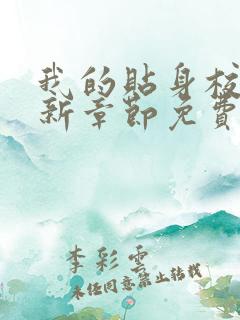 我的貼身校
新章節免費
李彩雲
未经同意禁止转载